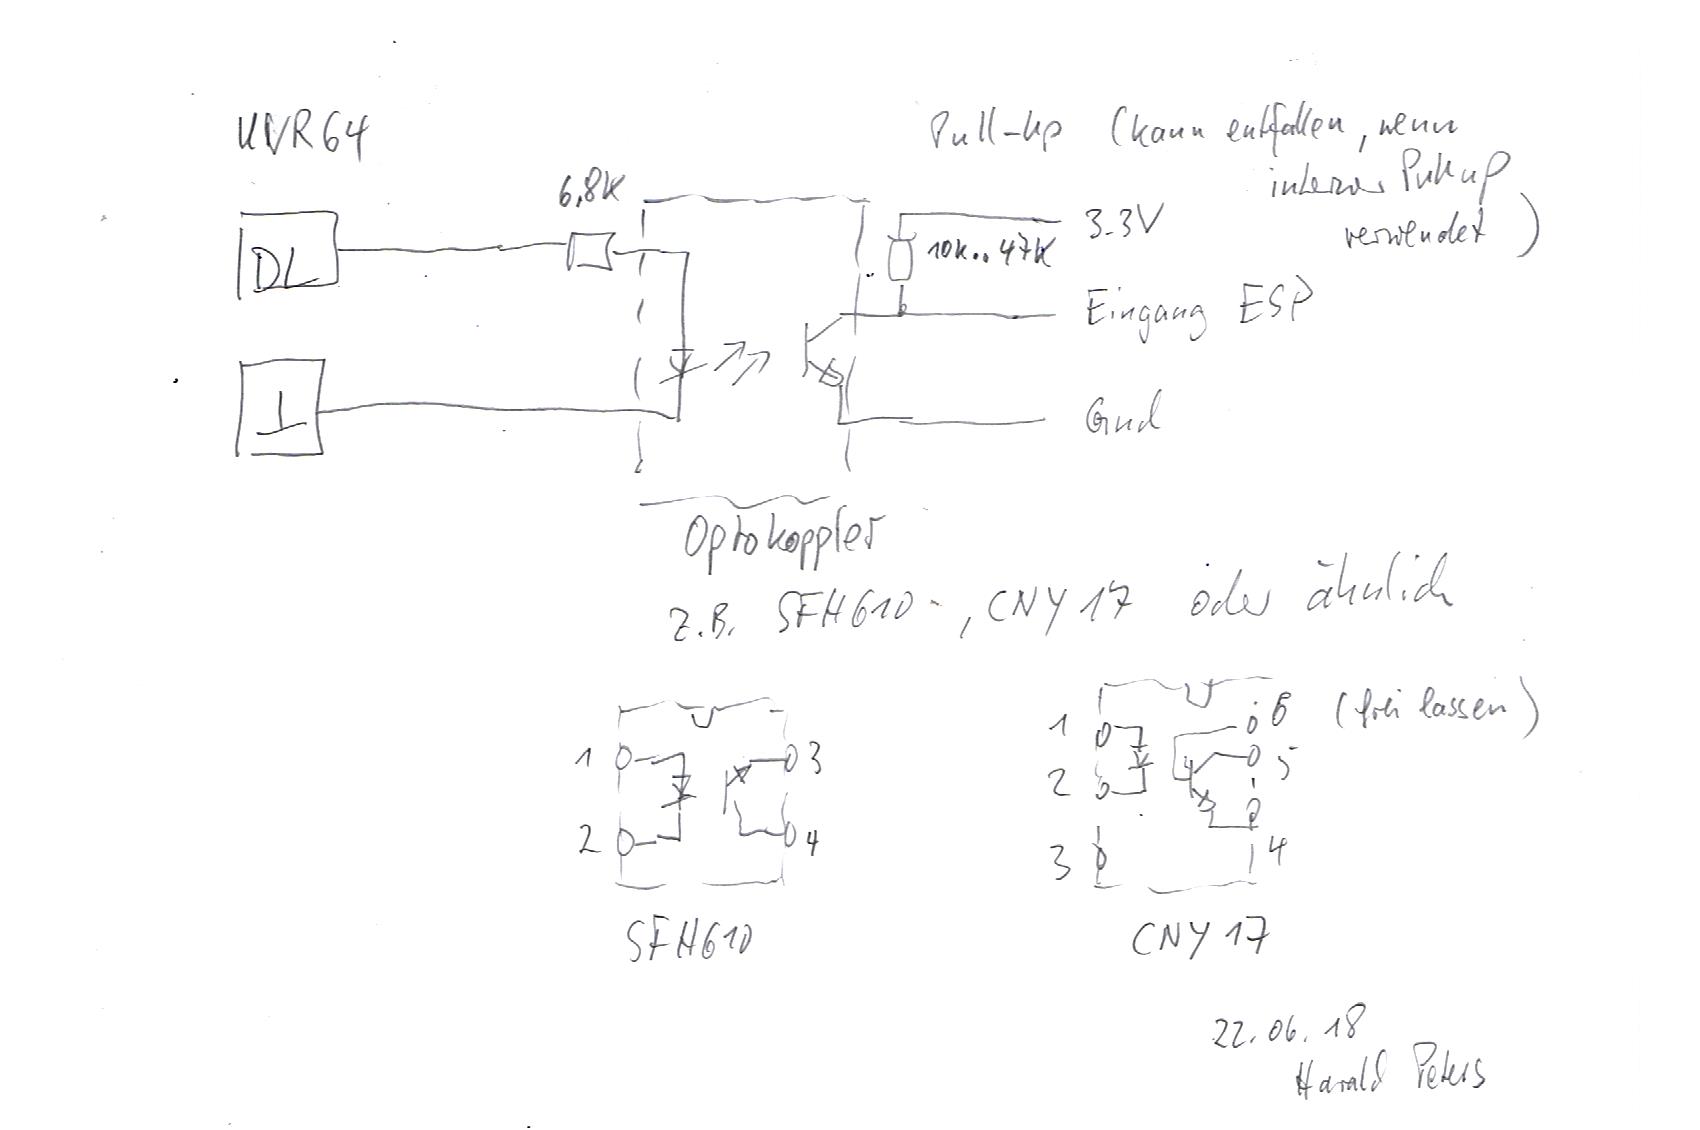 UVR64
Pull-Up (kann entfallen, wenn
interner Pullup
verwendet)
6,8K
DL
3.3V
10K..47K
Eingang ESP
Gnd
Optokoppler
z.B. SFH610-, CNY17 oder ähnlich
1
2
3
4
SFH610
1
2
3
6 (frei lassen)
5
4
CNY17
22.06.18
Harald Peters